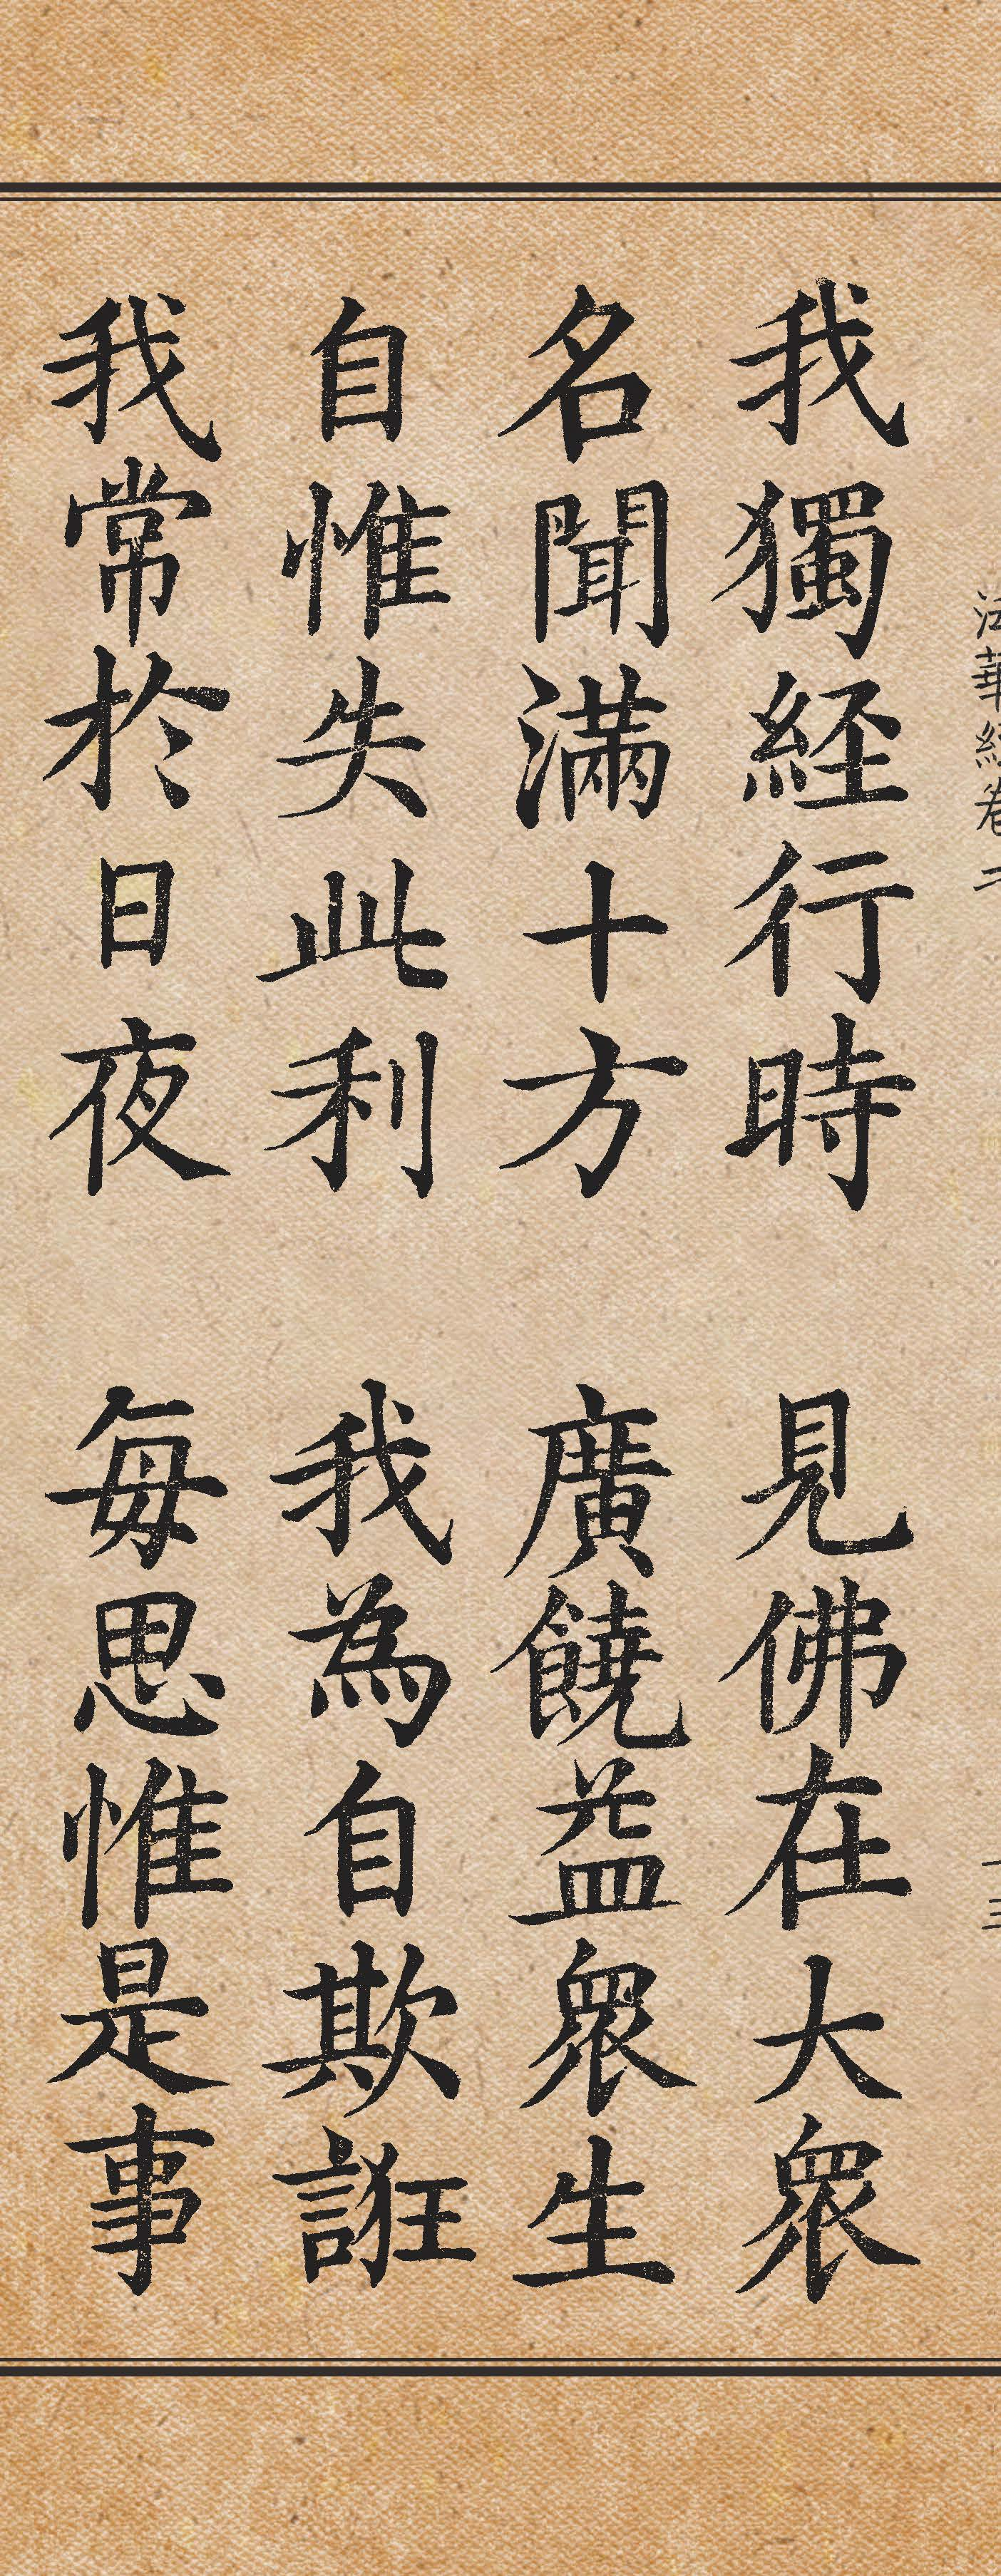 法華經卷二
我獨經行時 見佛在大衆
名聞滿十方 廣饒益衆生
自惟失此利 我為自欺誑
我常於日夜 每思惟是事